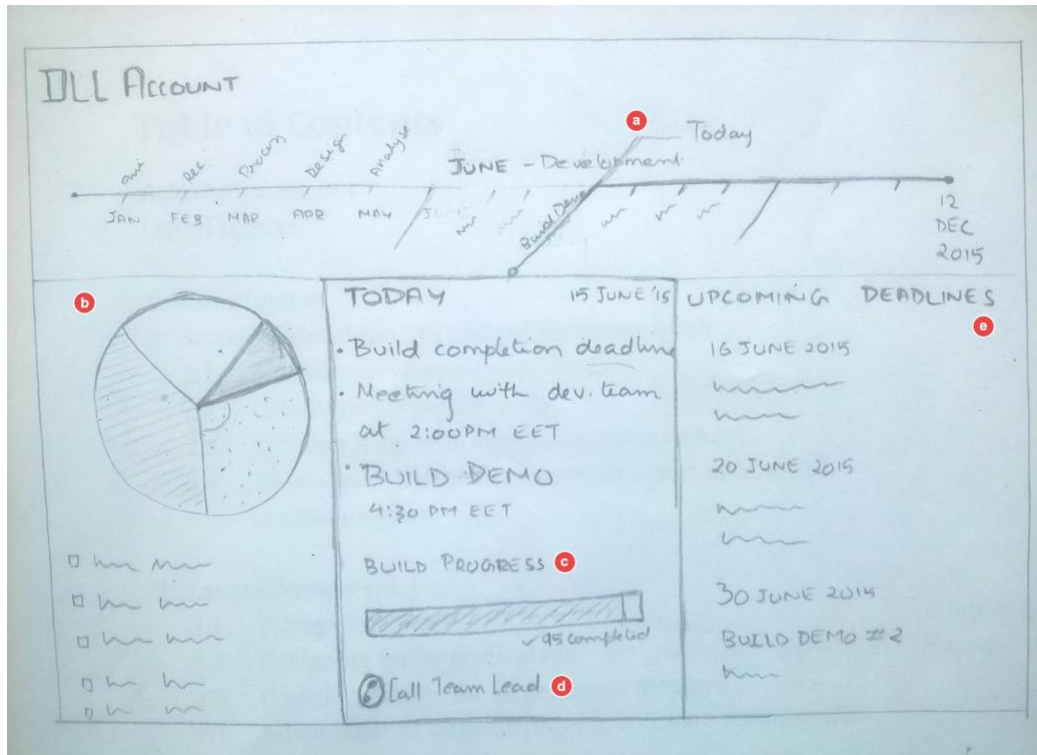 DLL ACCOUNT
a
Today
Rec.
Process
Design
Analyst
JUNE - Development
JAN
FEB
MAR
APR
MAY
JUNE
Build Demo
12
DEC
2015
b
TODAY
15 JUNE '15
• Build completion deadline
• Meeting with dev. team
at 2:00PM EET
• BUILD DEMO
4:30 PM EET
BUILD PROGRESS c
95 completed
Call Team Lead d
UPCOMING DEADLINES
e
16 JUNE 2015
20 JUNE 2015
30 JUNE 2015
BUILD DEMO #2